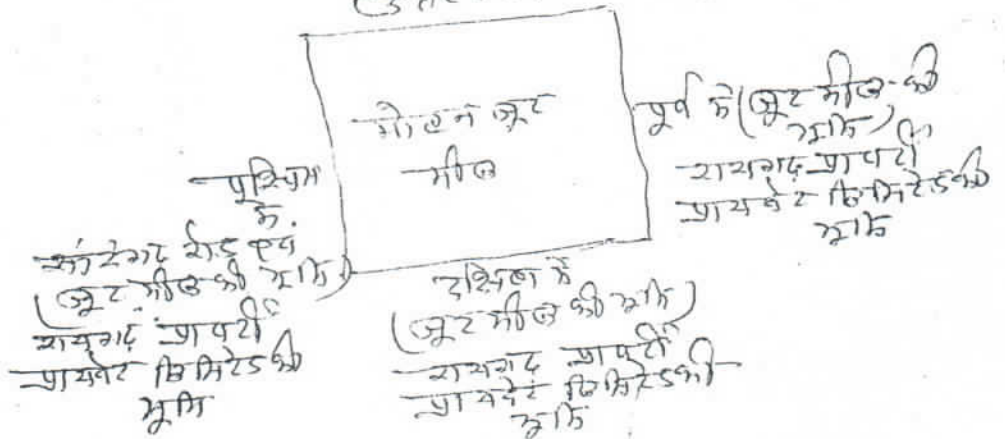 (उत्तर
मोहन जूट
मील
पूर्व में (जूट मील की
भूमि)
रायगढ़ प्रापर्टी
प्रायवेट लिमिटेड की
भूमि
पश्चिम
में
सारंगगढ़ रोड एवं
(जूट मील की भूमि)
रायगढ़ प्रापर्टी
प्रायवेट लिमिटेड की
भूमि
दक्षिण में
(जूट मील की भूमि)
रायगढ़ प्रापर्टी
प्रायवेट लिमिटेड की
भूमि